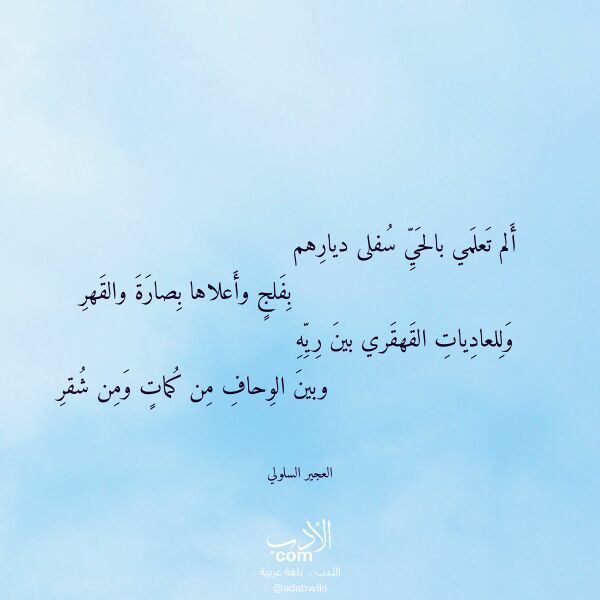 أَلم تَعلَمي بالحَيِّ سُفلى ديارِهم
بِفَلجٍ وأَعلاها بِصارَةَ والقَهرِ
وَلِلعادِياتِ القَهقَري بينَ رِيِّهِ
وبينَ الوِحافِ مِن كُماتٍ وَمِن شُقرِ
العجير السلولي
الأدب
com
الأدب .. بلغة عربية
@adabwiki